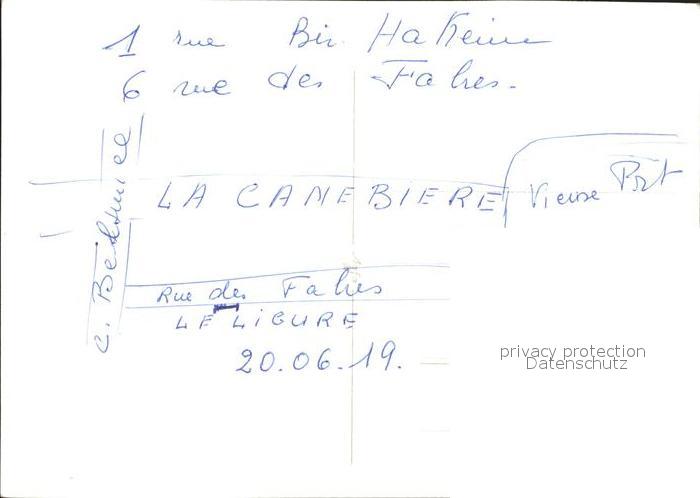 1 rue Bir HaKeim
6 rue des Fabres.
C. Belsunce
LA CANEBIERE
Vieux Port
Rue des Fabres
LE LIGURE
20.06.19.
privacy protection
Datenschutz